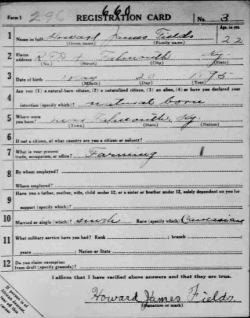 Form 1 296 660 REGISTRATION CARD No. 3
1 Name in full Howard James Fields Age, in yrs. 22
(Given name) (Family name)
2 Home address R.F.D. 4 Falmouth Ky.
(No.) (Street) (City) (State)
3 Date of birth May 1895
(Month) (Day) (Year)
4 Are you (1) a natural-born citizen, (2) a naturalized citizen, (3) an alien, (4) or have you declared your
intention (specify which)? natural born
5 Where were you born? near Falmouth, Ky.
(Town) (State) (Nation)
6 If not a citizen, of what country are you a citizen or subject?
7 What is your present trade, occupation, or office? Farming
8 By whom employed?
Where employed?
9 Have you a father, mother, wife, child under 12, or a sister or brother under 12, solely dependent on you for
support (specify which)?
10 Married or single (which)? single Race (specify which)? Caucasian
11 What military service have you had? Rank ; branch
years ; Nation or State
12 Do you claim exemption from draft (specify grounds)?
I affirm that I have verified above answers and that they are true.
Howard James Fields
(Signature or mark)